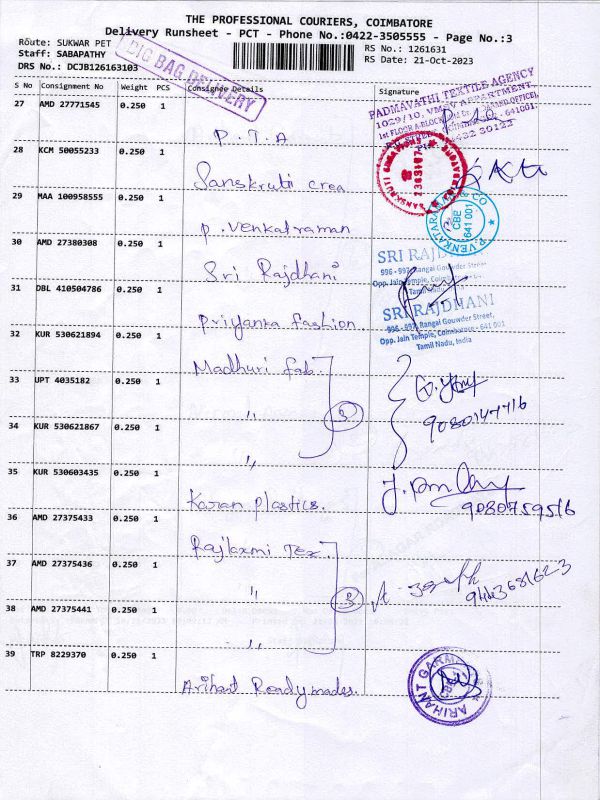 THE PROFESSIONAL COURIERS, COIMBATORE
Delivery Runsheet - PCT - Phone No.:0422-3505555 - Page No.:3
Route: SUKWAR PET
RS No.: 1261631
Staff: SABAPATHY
RS Date: 21-Oct-2023
DRS No.: DCJB126163103
BIG BAG DELIVERY
S No Consignment No Weight PCS Consignee Details Signature
27 AMD 27771545 0.250 1
P.T.A
PADMAVATHI TEXTILE AGENCY
28 KCM 50055233 0.250 1
Sanskruti crea
29 MAA 100958555 0.250 1
P. Venkatraman
CBE
641 001
30 AMD 27380308 0.250 1
Sri Rajdhani
SRI RAJDHANI
996 - 997, Rangai Gowder Street,
Opp. Jain Temple, Coimbatore
Tamil Nadu
31 DBL 410504786 0.250 1
Priyanka fashion
SRI RAJDHANI
996 - 997, Rangai Gowder Street,
Opp. Jain Temple, Coimbatore - 641 001
Tamil Nadu, India
32 KUR 530621894 0.250 1
Madhuri fab
33 UPT 4035182 0.250 1
"
3
9080147416
34 KUR 530621867 0.250 1
"
35 KUR 530603435 0.250 1
Karan plastics.
9080759516
36 AMD 27375433 0.250 1
Rajlaxmi Tex
37 AMD 27375436 0.250 1
"
3
38 AMD 27375441 0.250 1
"
39 TRP 8229370 0.250 1
Arihant Readymades.
ARIHANT